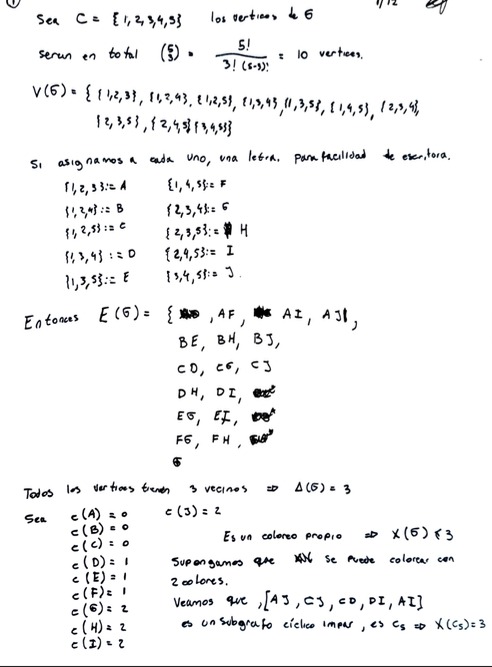 ①
1/12
Sea C = {1,2,3,4,5} los vertices de G
Seran en total (5 3) = 5! / 3!(5-3)! = 10 vertices.
V(G) = { {1,2,3}, {1,2,4}, {1,2,5}, {1,3,4}, {1,3,5}, {1,4,5}, {2,3,4},
{2,3,5}, {2,4,5} {3,4,5}}
Si asignamos a cada uno, una letra. para facilidad de escritora.
{1,2,3}:= A {1,4,5}:= F
{1,2,4}:= B {2,3,4}:= G
{1,2,5}:= C {2,3,5}:= H
{1,3,4}:= D {2,4,5}:= I
{1,3,5}:= E {3,4,5}:= J.
Entonces E(G) = { , AF, AI, AJ,
BE, BH, BJ,
CD, CG, CJ
DH, DI,
EG, EI,
FG, FH,
Todos los vertices tienen 3 vecinos => Δ(G) = 3
Sea c(A) = 0 c(J) = 2
c(B) = 0
c(C) = 0
c(D) = 1
c(E) = 1
c(F) = 1
c(G) = 2
c(H) = 2
c(I) = 2
Es un coloreo propio => X(G) ≤ 3
Supongamos que se puede colorear con
2 colores.
Veamos que, [AJ, CJ, CD, DI, AI]
es un subgrafo cíclico impar, es C5 => X(C5) = 3